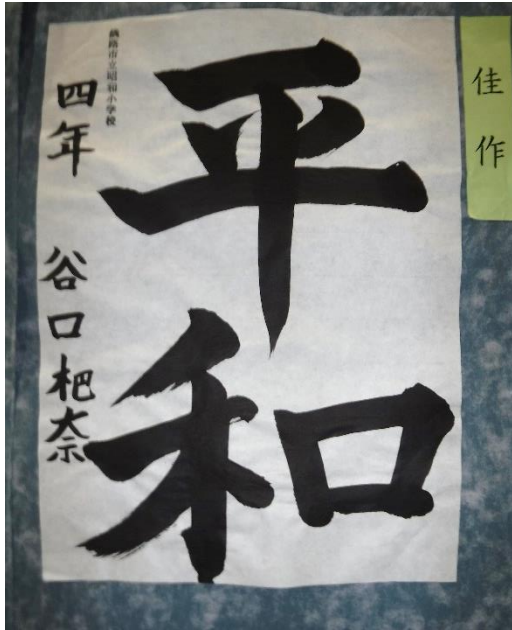 佳作
平和
釧路市立昭和小学校
四年 谷口杷奈